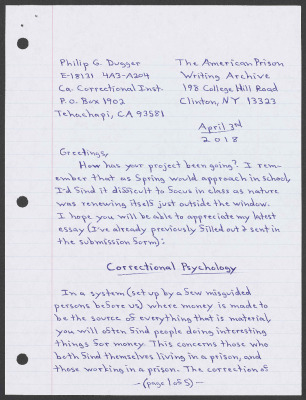 Philip G. Dugger
E-18131 4A3-A204
Ca. Correctional Inst.
P.O. Box 1902
Tehachapi, CA 93581
The American Prison
Writing Archive
198 College Hill Road
Clinton, NY 13323
April 3rd
2018
Greetings,
How has your project been going? I rem-
ember that as Spring would approach in school,
I'd find it difficult to focus in class as nature
was renewing itself just outside the window.
I hope you will be able to appreciate my latest
essay (I've already previously filled out & sent in
the submission form):
Correctional Psychology
In a system (set up by a few misguided
persons before us) where money is made to
be the source of everything that is material,
you will often find people doing interesting
things for money. This concerns those who
both find themselves living in a prison, and
those working in a prison. The correction of
-(page 1 of 5)-